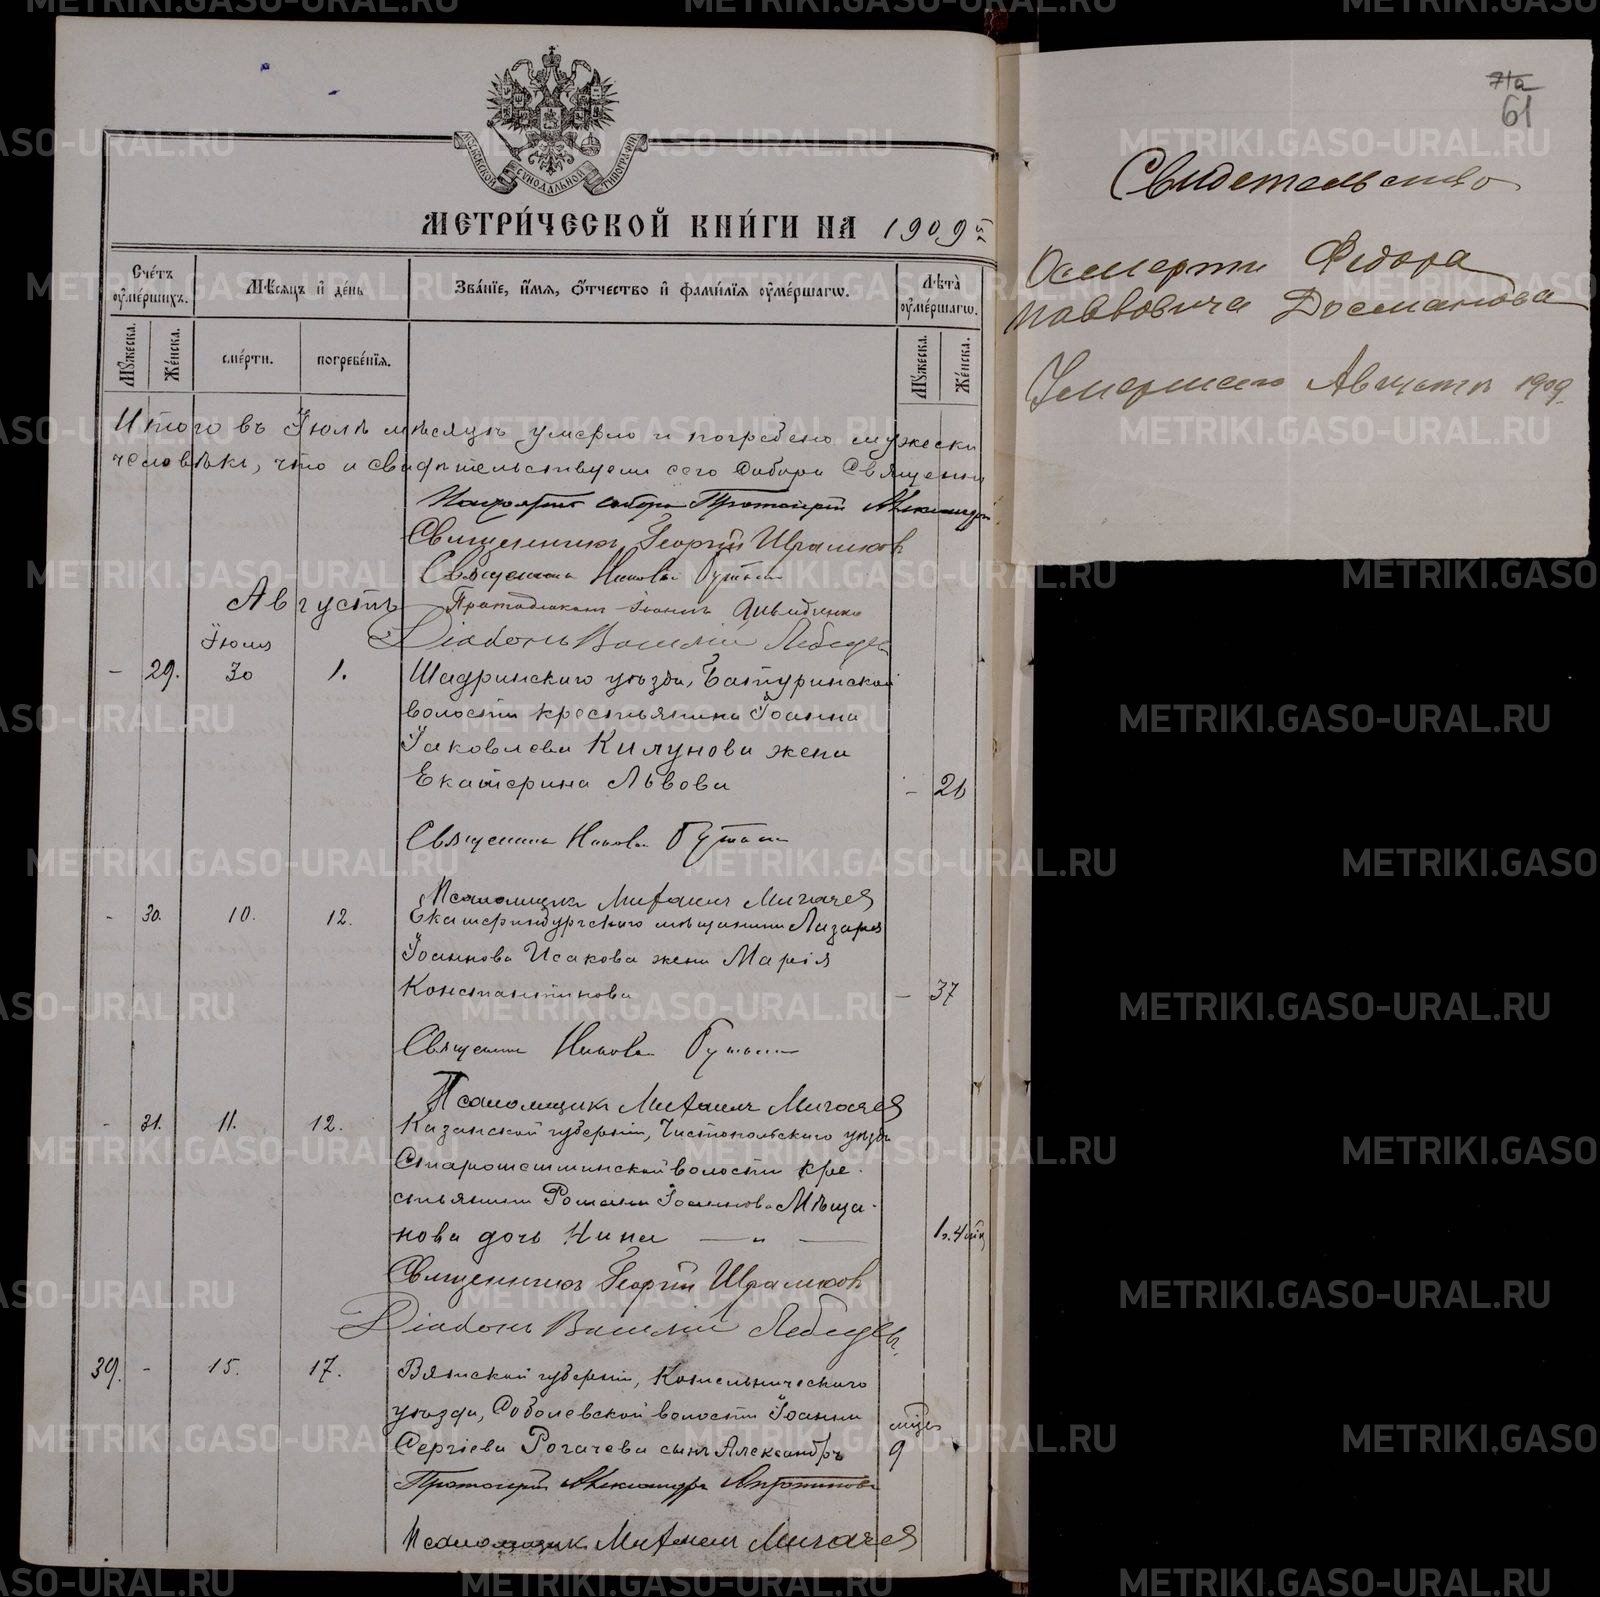 МОСКОВСКОЙ СѴНОДАЛЬНОЙ ТИПОГРАФІИ
МЕТРИ́ЧЕСКОЙ КНИ́ГИ НА 1909
Сче́тъ ᲂу҆ме́ршихъ.
Мѣ́сяцъ и҆ де́нь
Зва́нїе, и҆́мя, ѻ҆́тчество и҆ фамилїя ᲂу҆ме́ршагѡ.
Лѣта̀ ᲂу҆ме́ршагѡ.
Мꙋ́жеска.
Же́нска.
сме́рти.
погребе́нїя.
Мꙋ́жеска.
Же́нска.
Итого въ Іюлѣ мѣсяцѣ умерло и погребено мужеска
человѣка, что и свидѣтельствуемъ сего Собора Священни
собора Протоіерей Александръ
Священникъ Георгій
Священникъ
Августъ
Протодіаконъ Іоаннъ
Діаконъ Василій Лебедевъ
Іюля
- 29. 30 1. Шадринскаго уѣзда, Батуринской
волости крестьянина Іоанна
Іаковлева Килунова жена
Екатерина Львова - 26
Священникъ
Псаломщикъ Михаилъ Мигачев
- 30. 10. 12. Екатеринбургскаго мѣщанина Лазаря
Іоаннова Исакова жена Марія
Константинова - 37
Священникъ
Псаломщикъ Михаилъ Мигачев
- 31. 11. 12. Казанской губерніи, Чистопольскаго уѣзда
Старошешминской волости кре-
стьянина Романа Іоаннова Мѣща-
нова дочь Нина — „ — 1 г. 4 мѣс
Священникъ Георгій
Діаконъ Василій Лебедевъ.
39. - 15. 17. Вятской губерніи, Котельническаго
уѣзда, Соболевской волости Іоанна мѣс
Сергіева Рогачева сынъ Александръ 9
Протоіерей Александръ
Псаломщикъ Михаилъ Мигачев
71а
61
Свидетельство
О смерти Фёдора
Павловича Досманова
Умершаго Августа 1909.
METRIKI.GASO-URAL.RU